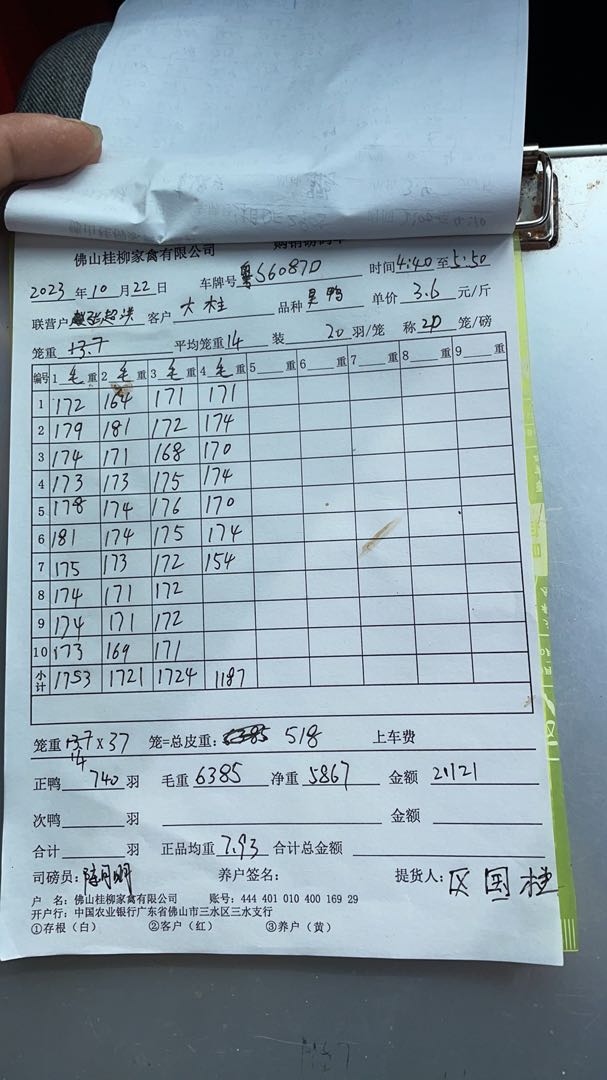 佛山桂柳家禽有限公司
2023年10月22日 车牌号 粤S6087D 时间 4:40 至 5:50
联营户 客户 大桂 品种 旦鸭 单价 3.6 元/斤
笼重 13.7 平均笼重 14 装 20 羽/笼 称 20 笼/磅
编号 1 毛 重 2 毛 重 3 毛 重 4 毛 重 5 重 6 重 7 重 8 重 9 重
1 172 164 171 171
2 179 181 172 174
3 174 171 168 170
4 173 173 175 174
5 178 174 176 170
6 181 174 175 174
7 175 173 172 154
8 174 171 172
9 174 171 172
10 173 169 171
小计 1753 1721 1724 1187
笼重 13.7 x 37 笼=总皮重: 518 上车费
14
正鸭 740 羽 毛重 6385 净重 5867 金额 21121
次鸭 羽 金额
合计 羽 正品均重 7.93 合计总金额
司磅员: 陈月明 养户签名: 提货人: 区国桂
户 名: 佛山桂柳家禽有限公司 账号: 444 401 010 400 169 29
开户行: 中国农业银行广东省佛山市三水区三水支行
①存根（白） ②客户（红） ③养户（黄）